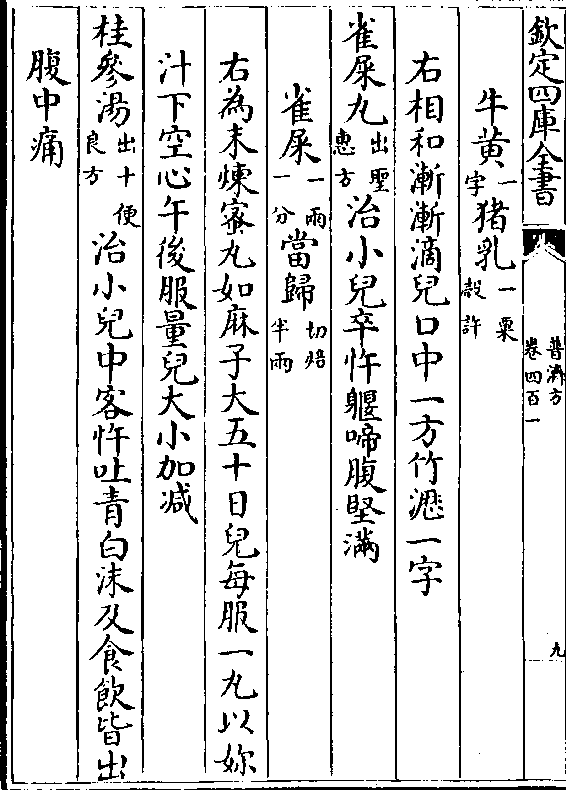 欽定四庫全書
普濟方
卷四百一
九
牛黄一字猪乳一粟殻許
右相和漸漸滴兒口中一方竹瀝一字
雀屎丸出聖惠方治小兒卒忤軀啼腹堅滿
雀屎一兩一分當歸切焙半兩
右為末煉宻丸如麻子大五十日兒每服一丸以妳
汁下空心午後服量兒大小加減
桂參湯出十便良方治小兒中客忤吐青白沫及食飲皆出
腹中痛